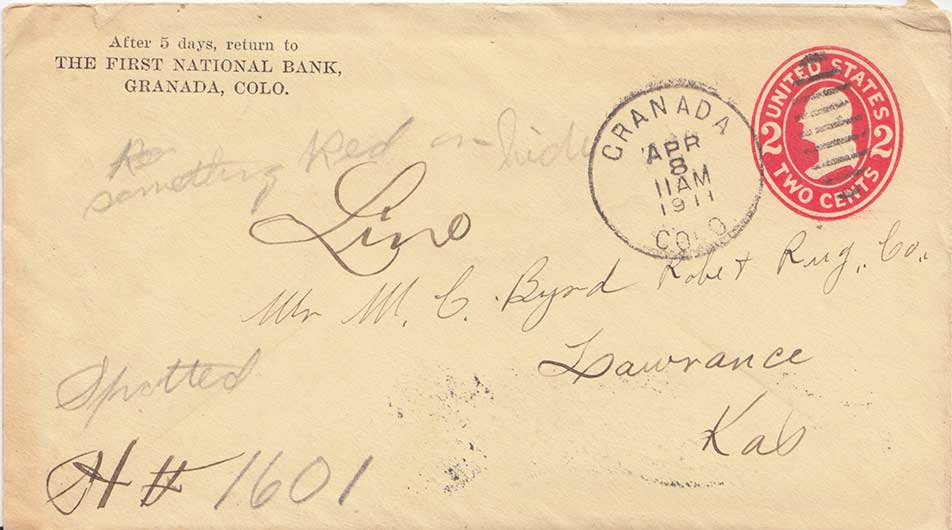 After 5 days, return to
THE FIRST NATIONAL BANK,
GRANADA, COLO.
UNITED STATES
2 2
TWO CENTS
GRANADA
APR
8
11AM
1911
COLO
something Red on hide
Line
Mr M. C. Byrd Robe & Rug. Co.
Lawrance
Kas
Spotted
H # 1601